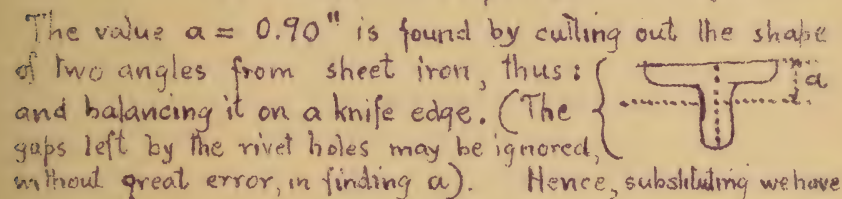 The value a = 0.90" is found by cutting out the shape
of two angles from sheet iron, thus:
a
and balancing it on a knife edge. (The
gaps left by the rivet holes may be ignored,
without great error, in finding a). Hence, substituting we have